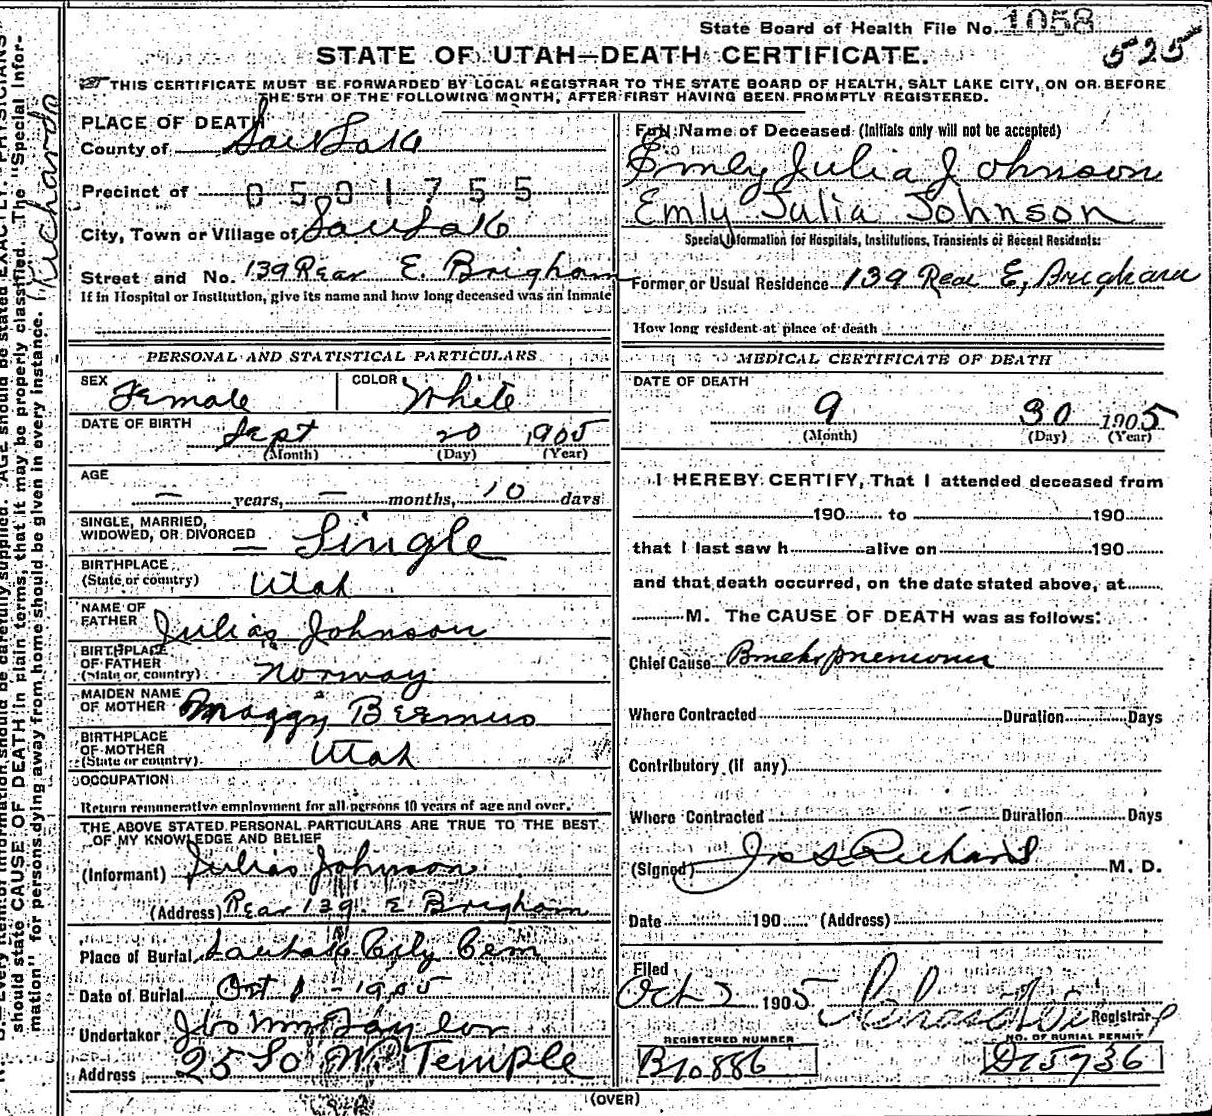 State Board of Health File No. 1058
525
STATE OF UTAH—DEATH CERTIFICATE.
THIS CERTIFICATE MUST BE FORWARDED BY LOCAL REGISTRAR TO THE STATE BOARD OF HEALTH, SALT LAKE CITY, ON OR BEFORE
THE 5TH OF THE FOLLOWING MONTH, AFTER FIRST HAVING BEEN PROMPTLY REGISTERED.
PLACE OF DEATH
County of Salt Lake
Precinct of 0501755
City, Town or Village of Salt Lake
Street and No. 139 Rear E. Brigham
If in Hospital or Institution, give its name and how long deceased was an inmate
PERSONAL AND STATISTICAL PARTICULARS
SEX Female COLOR White
DATE OF BIRTH Sept 20 1905
(Month) (Day) (Year)
AGE
— years, — months, 10 days
SINGLE, MARRIED,
WIDOWED, OR DIVORCED Single
BIRTHPLACE
(State or country) Utah
NAME OF
FATHER Julias Johnson
BIRTHPLACE
OF FATHER
(State or country) Norway
MAIDEN NAME
OF MOTHER Maggy
BIRTHPLACE
OF MOTHER
(State or country) Utah
OCCUPATION
Return remunerative employment for all persons 10 years of age and over.
THE ABOVE STATED PERSONAL PARTICULARS ARE TRUE TO THE BEST
OF MY KNOWLEDGE AND BELIEF
(Informant) Julias Johnson
(Address) Rear 139 E Brigham
Place of Burial Salt Lake City Cem
Date of Burial Oct 1 - 1905
Undertaker Jos Wm Taylor
Address 25 So W. Temple
Full Name of Deceased (Initials only will not be accepted)
Emly Julia Johnson
Emly Julia Johnson
Special Information for Hospitals, Institutions, Transients or Recent Residents:
Former or Usual Residence 139 Rear E, Brigham
How long resident at place of death
MEDICAL CERTIFICATE OF DEATH
DATE OF DEATH
9 30 1905
(Month) (Day) (Year)
I HEREBY CERTIFY, That I attended deceased from
190 to 190
that I last saw h alive on 190
and that death occurred, on the date stated above, at
M. The CAUSE OF DEATH was as follows:
Chief Cause
Where Contracted Duration Days
Contributory (if any)
Where Contracted Duration Days
(Signed) Jos S Richards M. D.
Date 190 (Address)
Filed
Oct 2 1905 Registrar
REGISTERED NUMBER NO. OF BURIAL PERMIT
B10886 D15736
(OVER)
Richards
should state CAUSE OF DEATH in plain terms, that it may be properly classified. The "Special Infor-
mation" for persons dying away from home should be given in every instance.